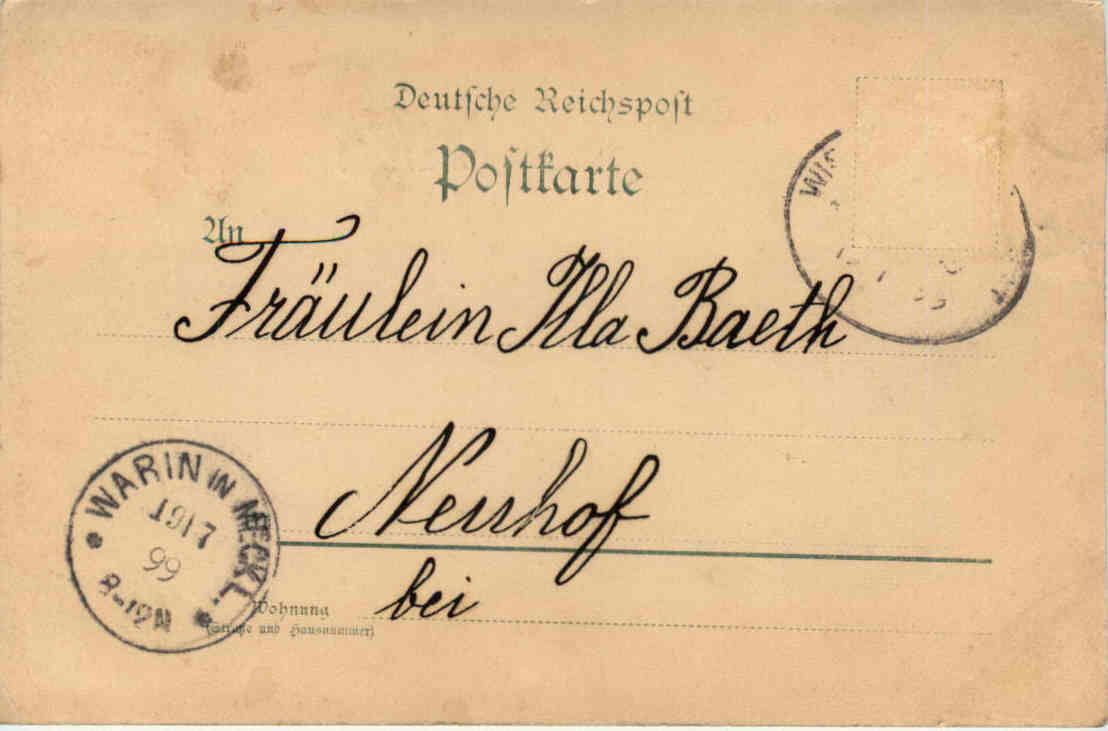 Deutsche Reichspost
Postkarte
An
Fräulein Illa Baeth
Neuhof
bei
Wohnung
(Straße und Hausnummer)
WARIN IN MECKL.
19 17
99
8-12N
WIS